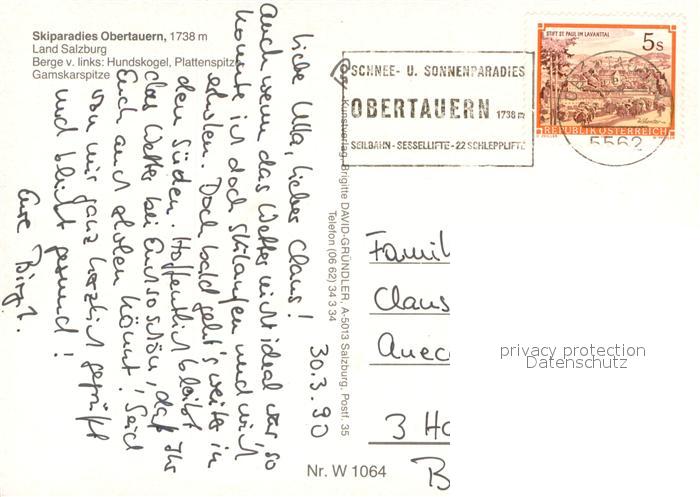 Skiparadies Obertauern, 1738 m
Land Salzburg
Berge v. links: Hundskogel, Plattenspitze
Gamskarspitze
30.3.90
Liebe Ulla, lieber Claus!
Auch wenn das Wetter nicht ideal war so
konnte ich doch skilaufen und mich
erholen. Doch bald geht's weiter in
den Süden. Hoffentlich bleibt
das Wetter bei Euch so schön, daß Ihr
Euch auch erholen könnt! Seid
von mir ganz herzlich gegrüßt
und bleibt gesund!
Eure Birgit.
Kunstverlag Brigitte DAVID-GRÜNDLER, A-5013 Salzburg, Postf. 35
Telefon (06 62) 34 3 34
SCHNEE- U. SONNENPARADIES
OBERTAUERN 1738 m
SEILBAHN-SESSELLIFTE-22 SCHLEPPLIFTE
STIFT ST. PAUL IM LAVANTTAL
5 S
REPUBLIK ÖSTERREICH
5562
Famil
Claus
Auec
3 Ha
B
privacy protection
Datenschutz
Nr. W 1064